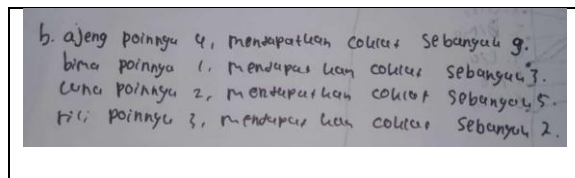 b. ajeng poinnya 4, mendapatkan coklat sebanyak 9.
bima poinnya 1, mendapat kan coklat sebanyak 3.
cuna poinnya 2, mendapatkan coklat sebanyak 5.
rici poinnya 3, mendapat kan coklat sebanyak 2.